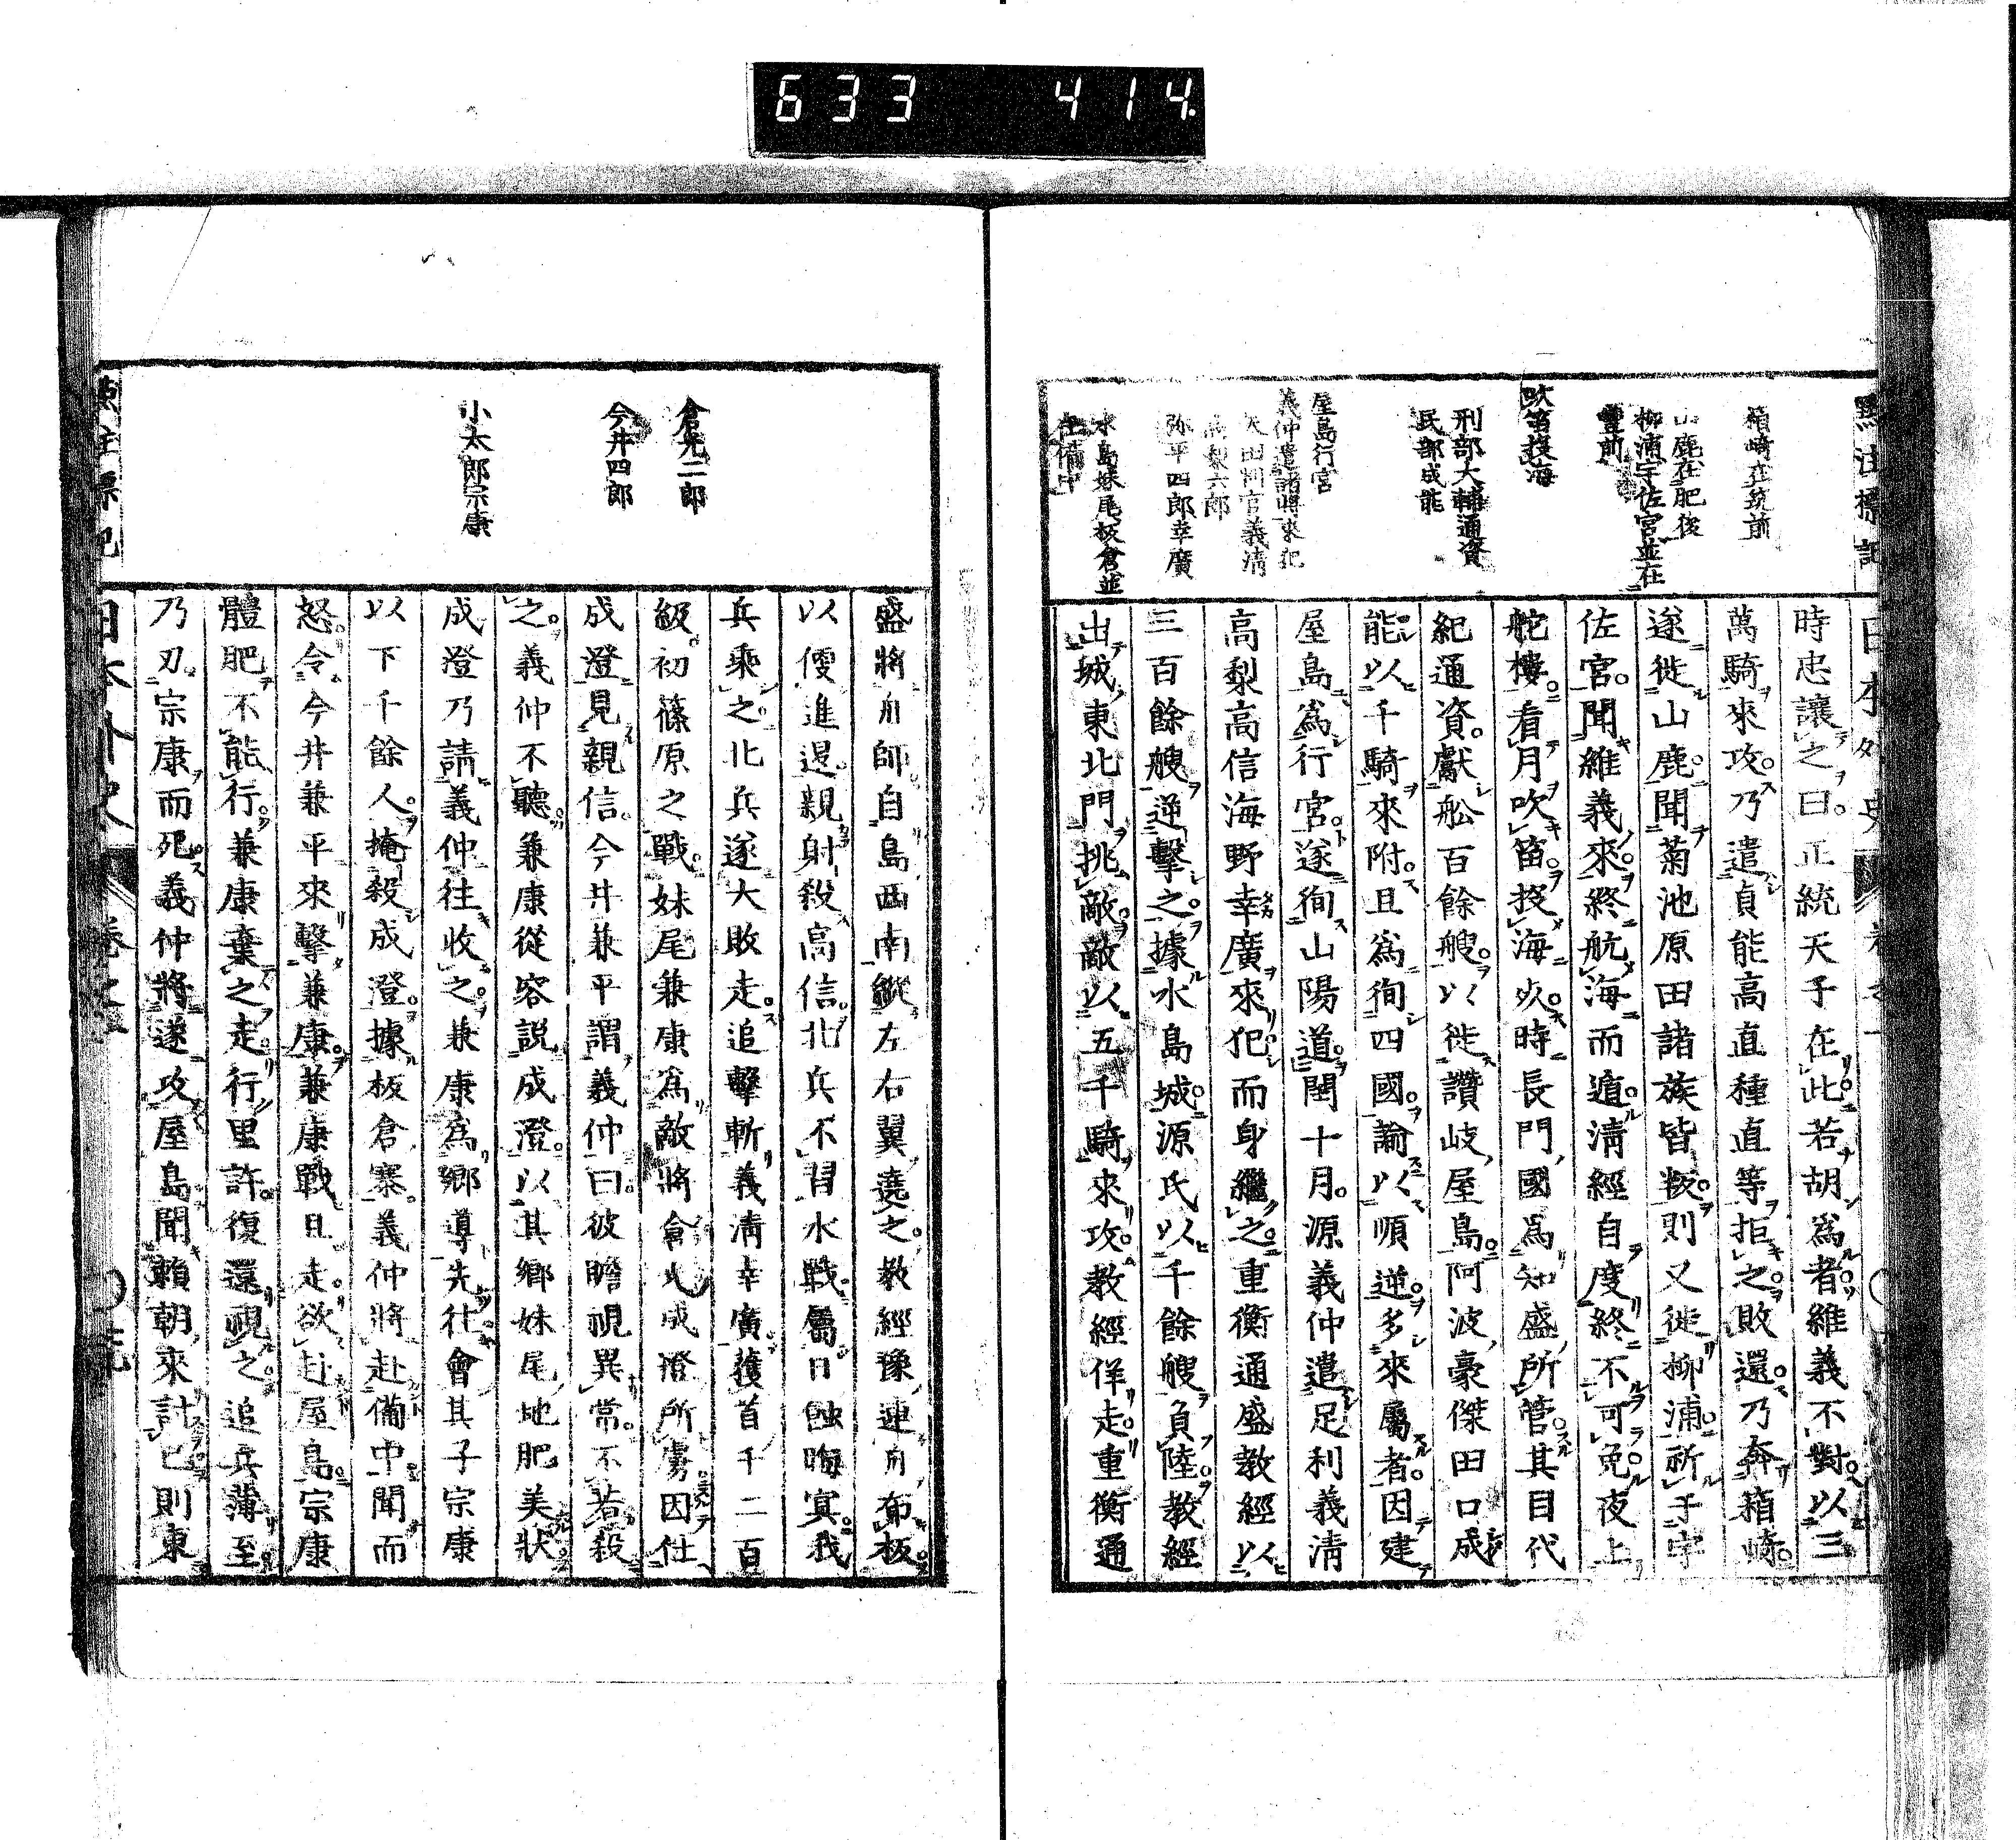 633 414.
點註標記
箱崎在筑前
山鹿在肥後
柳浦宇佐宮並在
豐前
吹笛投海
刑部大輔通資
民部成能
屋島行宮
義仲遣諸將來犯
矢田判官義淸
高梨六郎
弥平四郎幸廣
水島妹尾板倉並
在備中
日本外史
時忠讓之曰正統天子在此若胡爲者維義不對以三
萬騎來攻乃遣貞能高直種直等拒之敗還乃奔箱崎
遂徙山鹿聞菊池原田諸族皆叛則又徙柳浦祈于宇
佐宮聞維義來終航海而遁淸經自度終不可免夜上
舵樓看月吹笛投海死時長門國爲知盛所管其目代
紀通資獻舩百餘艘以徙讚岐屋島阿波豪傑田口成
能以千騎來附且爲徇四國論以順逆多來屬者因建
屋島爲行宮遂徇山陽道閏十月源義仲遣足利義淸
高梨高信海野幸廣來犯而身繼之重衡通盛教經以
三百餘艘逆擊之據水島城源氏以千餘艘負陸教經
出城東北門挑敵敵以五千騎來攻教經佯走重衡通
倉光二郎
今井四郎
小太郎宗康
盛將舟師自島西南縱左右翼遶之教經豫連舟布板
以便進退親射殺高信北兵不習水戰屬日蝕晦冥我
兵乘之北兵遂大敗走追擊斬義淸幸廣獲首千二百
級初篠原之戰妹尾兼康爲敵將倉光成澄所虜因仕
成澄見親信今井兼平謂義仲曰彼瞻視異常不若殺
之義仲不聽兼康從容説成澄以其鄉妹尾地肥美狀
成澄乃請義仲往收之兼康爲鄉導先往會其子宗康
以下千餘人掩殺成澄據板倉寨義仲將赴備中聞而
怒令今井兼平來擊兼康兼康戰且走欲赴屋島宗康
體肥不能行兼康棄之走行里許復還視之追兵薄至
乃刃宗康而死義仲將遂攻屋島聞賴朝來討已則東
日本外史 卷之
點註標記